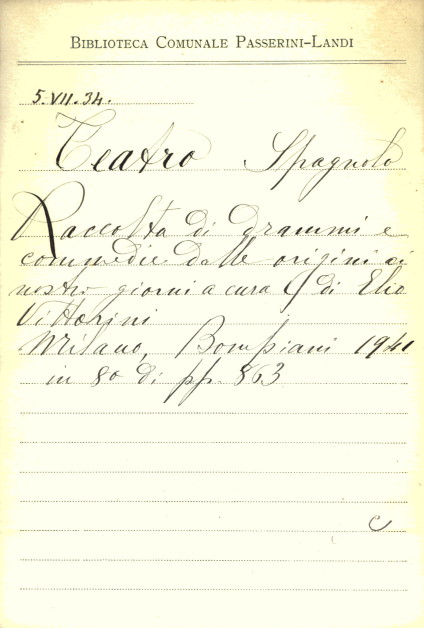 BIBLIOTECA COMUNALE PASSERINI-LANDI
5.VII.34.
Teatro Spagnolo
Raccolta di drammi e
commedie dalle origini ai
nostri giorni a cura di Elio
Vittorini
Milano, Bompiani 1941
in 8o di pp. 863
C